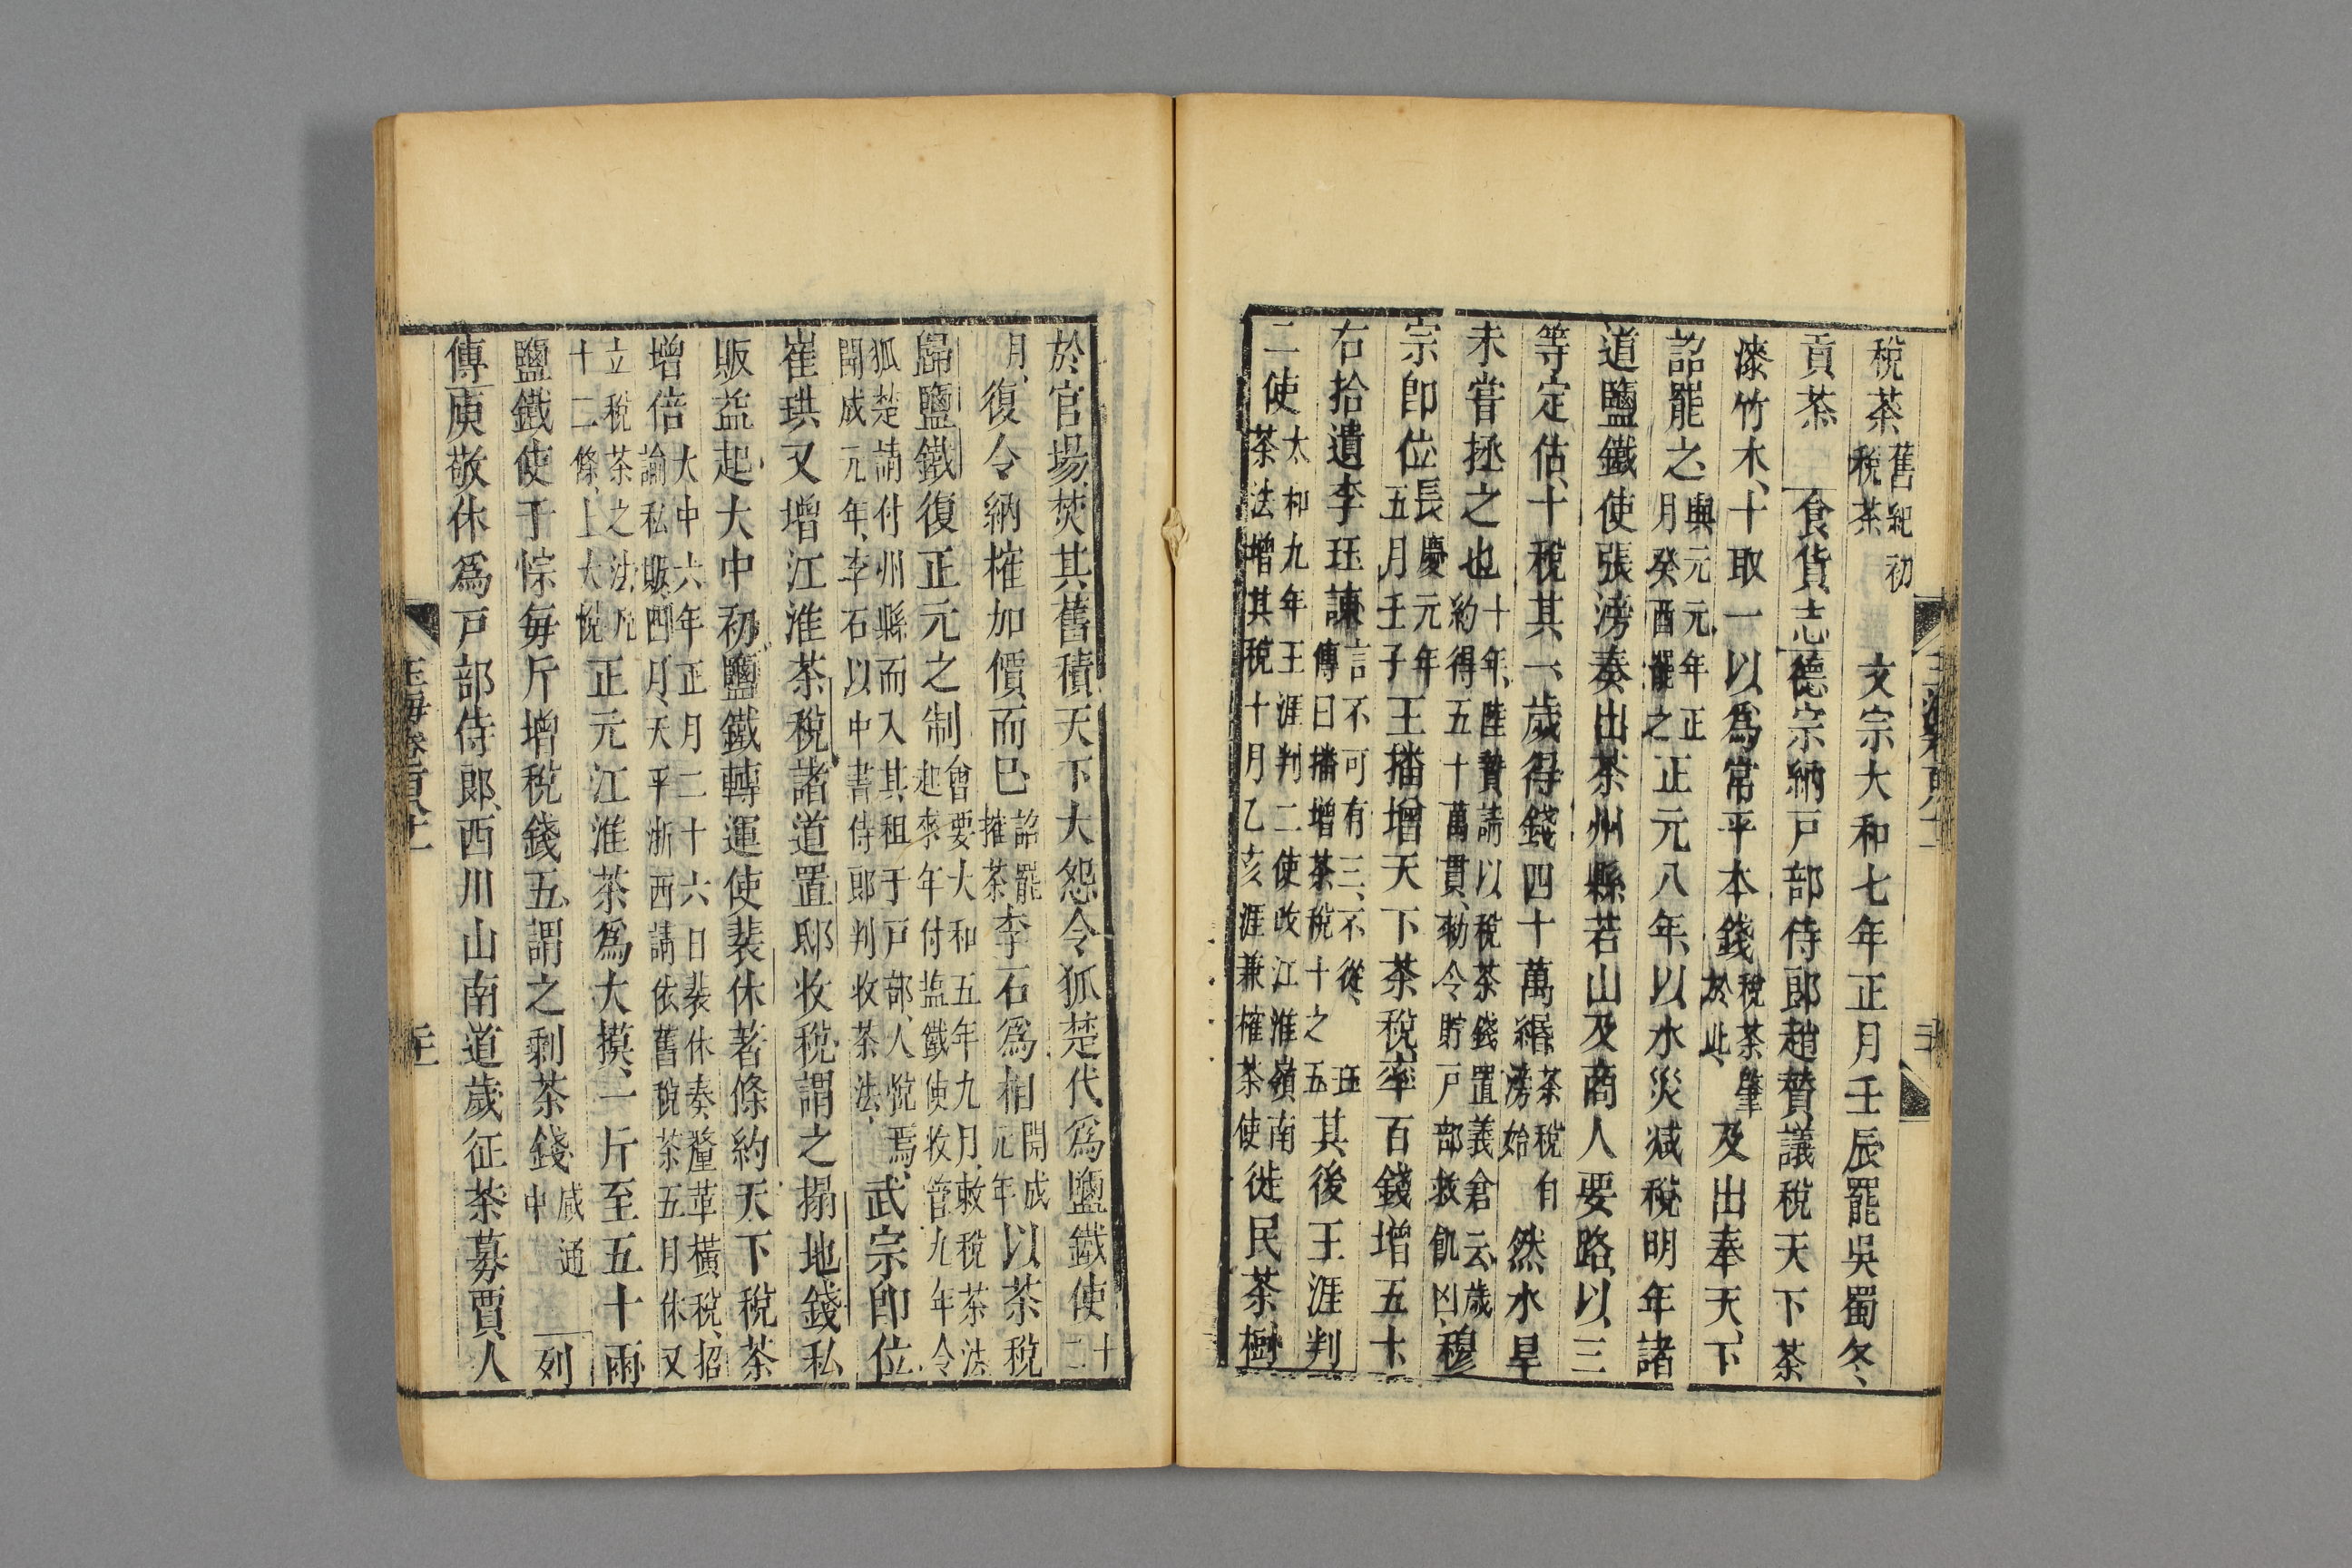 稅茶舊紀初稅茶 文宗大和七年正月壬辰罷吳蜀冬
貢茶 食貨志德宗納戶部侍郎趙贊議稅天下茶
漆竹木十取一以爲常平本錢稅茶肇於此及出奉天下
詔罷之興元元年正月癸酉罷之正元八年以水災減稅明年諸
道鹽鐵使張滂奏出茶州縣若山及商人要路以三
等定估十稅其一歲得錢四十萬緡茶稅自滂始然水旱
未嘗拯之也十年陸贄請以稅茶錢置義倉云歲約得五十萬貫勑令貯戶部救飢凶穆
宗卽位長慶元年五月壬子王播增天下茶稅率百錢增五十
右拾遺李珏諫言不可有三不從珏傳曰播增茶稅十之五其後王涯判
二使太和九年王涯判二使改江淮嶺南茶法增其稅十月乙亥涯兼榷茶使徙民茶樹
於官場焚其舊積天下大怨令狐楚代爲鹽鐵使十二
月復令納榷加價而巳詔罷榷茶李石爲相開成元年以茶稅
歸鹽鐵復正元之制會要大和五年九月敕稅茶法起來年付盐鐵使收管九年令
狐楚請付州縣而入其租于戶部人悅焉開成元年李石以中書侍郎判收茶法武宗卽位
崔珙又增江淮茶稅諸道置邸收稅謂之搨地錢私
販益起大中初鹽鐵轉運使裴休著條約天下稅茶
增倍大中六年正月二十六日裴休奏釐革橫稅招諭私販四月天平浙西請依舊稅茶五月休又
立稅茶之法凡十二條上大悅正元江淮茶爲大摸一斤至五十兩
鹽鐵使于悰每斤增稅錢五謂之剩茶錢咸通中 列
傳庾敬休爲戶部侍郎西川山南道歲征茶募賈人